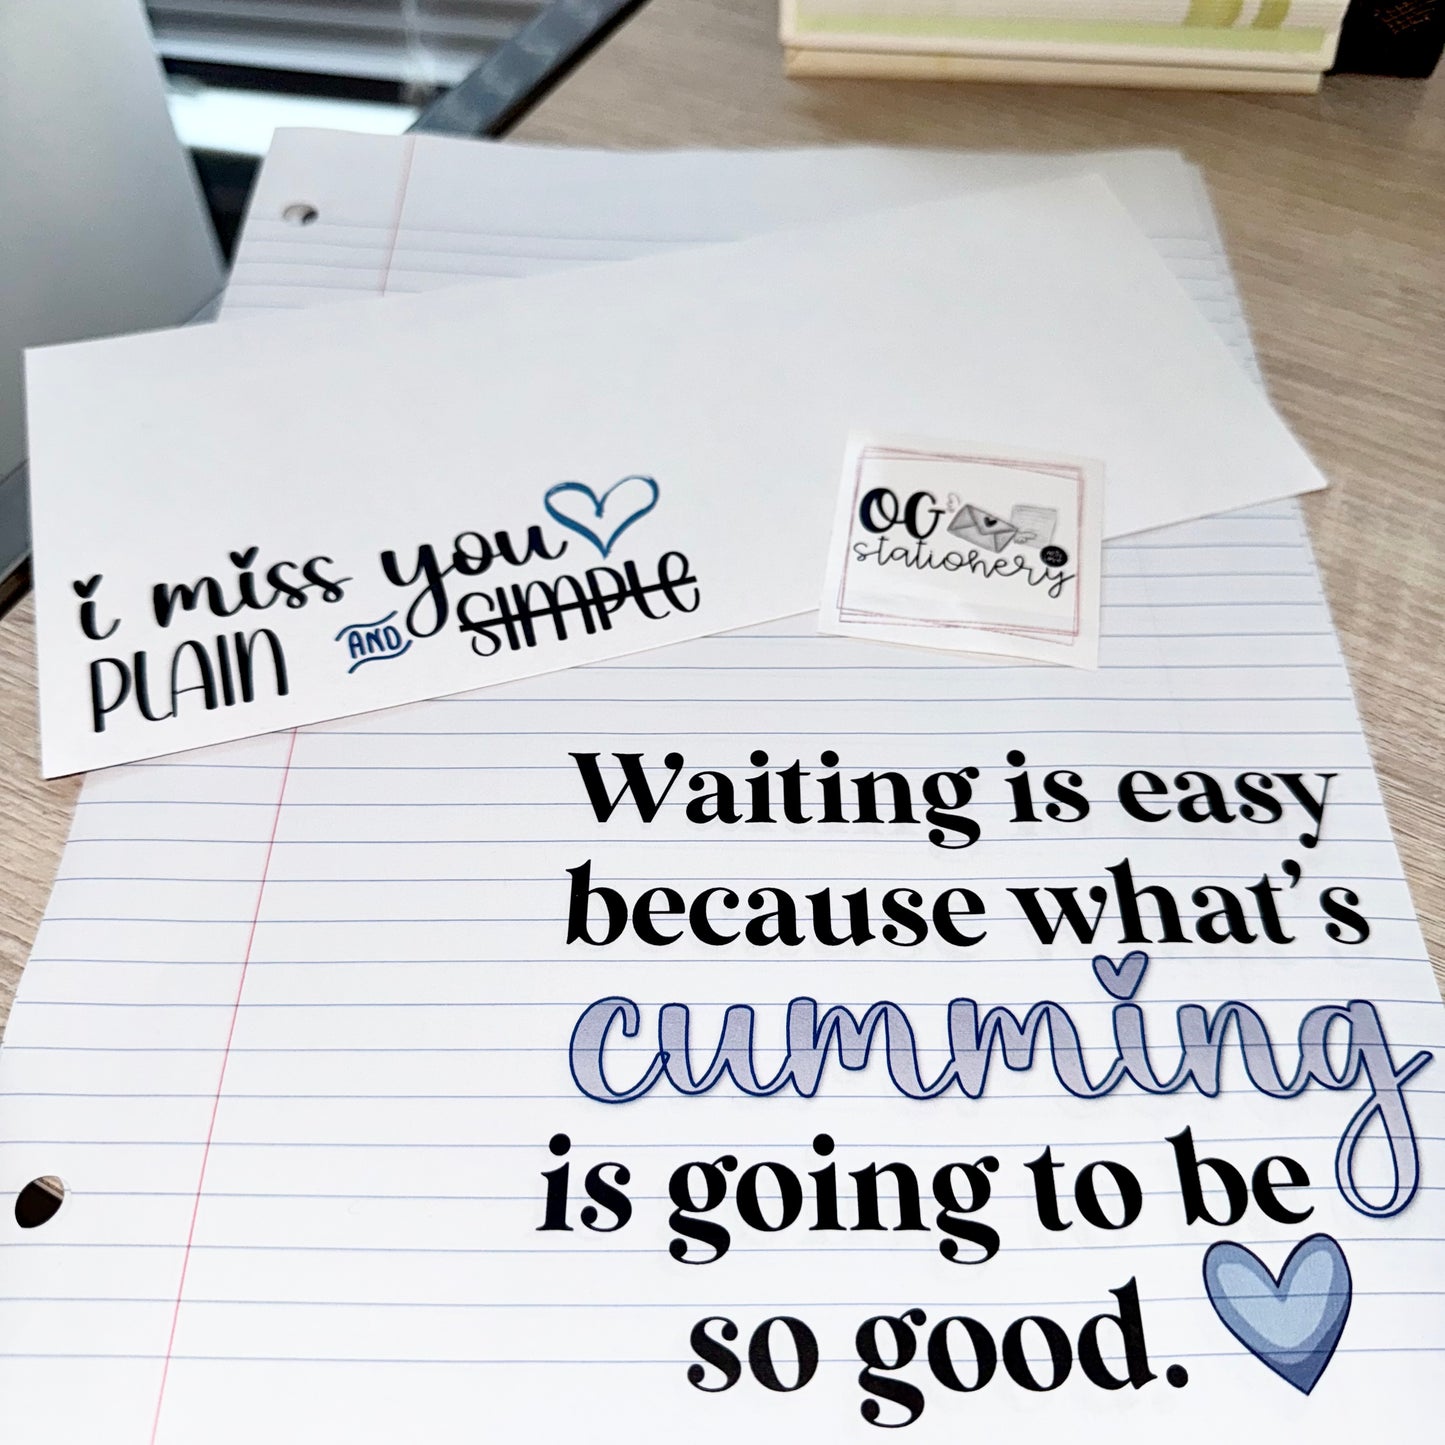 i miss you
PLAIN AND SIMPLE
OG
stationery
Waiting is easy
because what's
cumming
is going to be
so good.